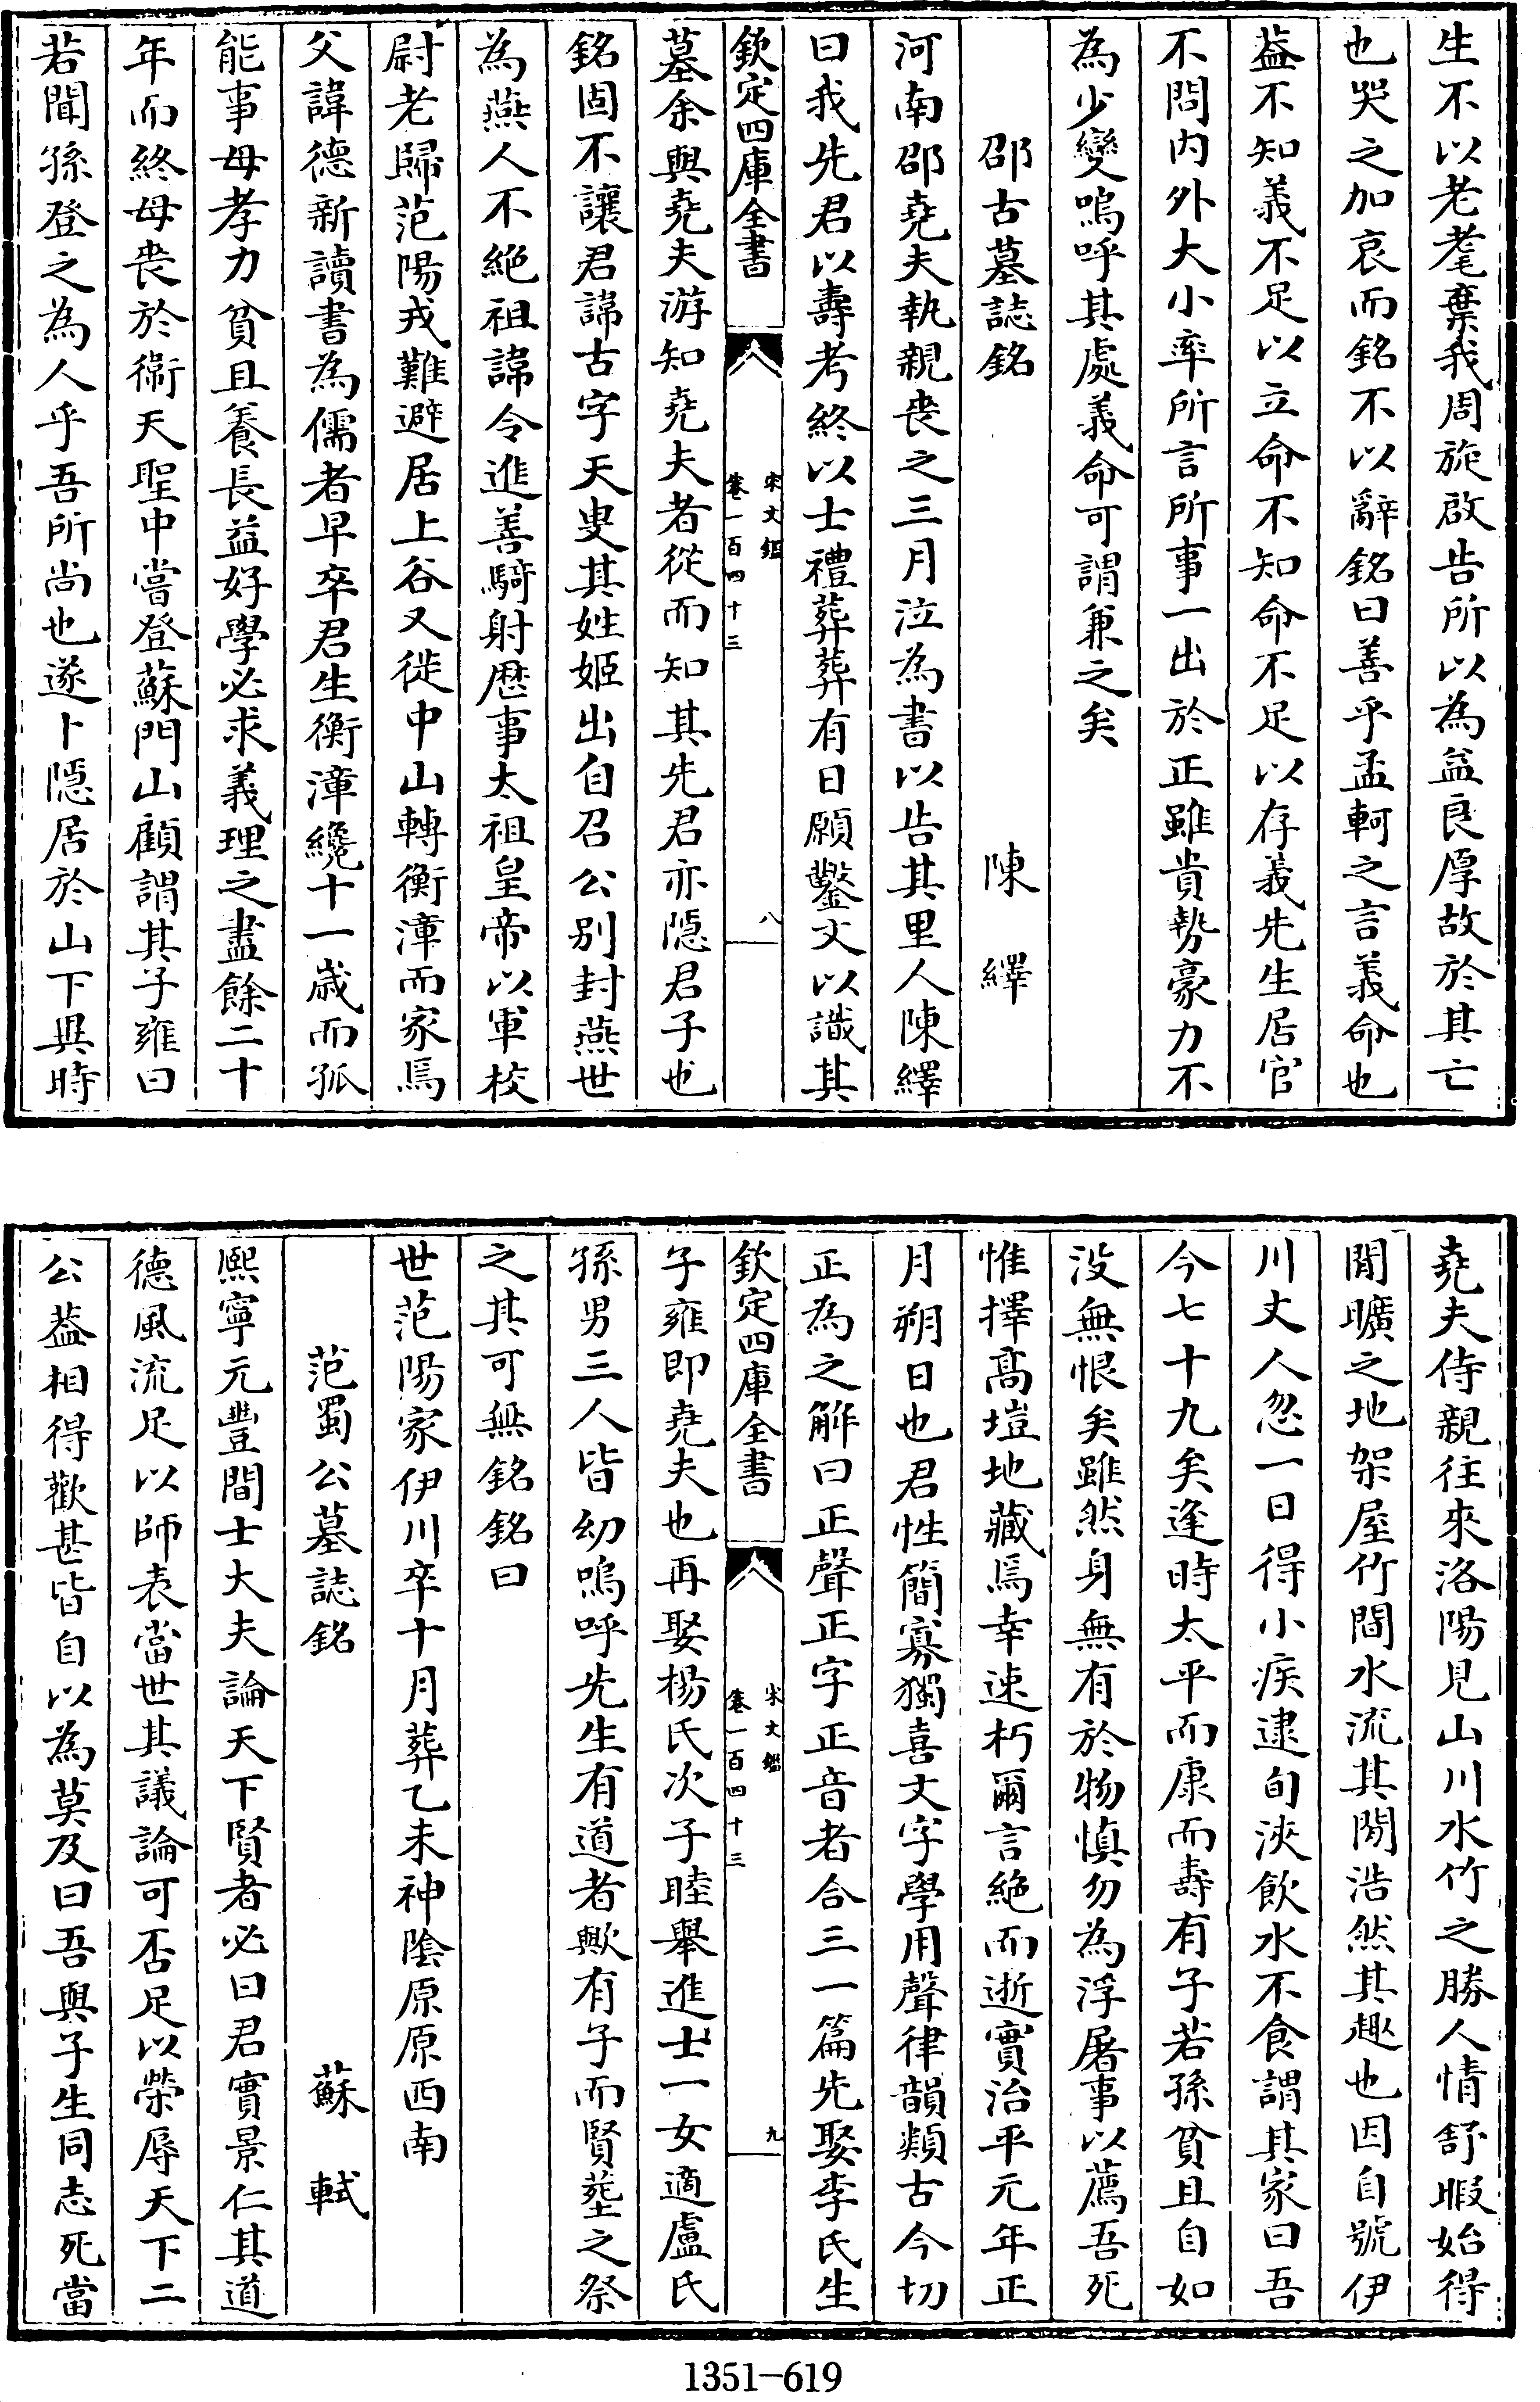 生不以老耄棄我周旋啟告所以為益良厚故於其亡
也哭之加哀而銘不以辭銘曰善乎孟軻之言義命也
葢不知義不足以立命不知命不足以存義先生居官
不問内外大小率所言所事一出於正雖貴勢豪力不
為少變嗚呼其處義命可謂兼之矣
邵古墓誌銘　陳繹
河南邵堯夫執親喪之三月泣為書以告其里人陳繹
曰我先君以壽考終以士禮葬葬有日願鑿文以識其
欽定四庫全書　宋文鑑 卷一百四十三　八
墓余與堯夫游知堯夫者從而知其先君亦隱君子也
銘固不讓君諱古字天叟其姓姬出自召公别封燕世
為燕人不絶祖諱令進善騎射歴事太祖皇帝以軍校
尉老歸范陽戎難避居上谷又徙中山轉衡漳而家焉
父諱德新讀書為儒者早卒君生衡漳纔十一歳而孤
能事母孝力貧且養長益好學必求義理之盡餘二十
年而終母喪於衞天聖中嘗登蘇門山顧謂其子雍曰
若聞孫登之為人乎吾所尚也遂卜隱居於山下異時
堯夫侍親往來洛陽見山川水竹之勝人情舒暇始得
閒曠之地架屋竹間水流其閒浩然其趣也因自號伊
川丈人忽一日得小疾逮旬浹飲水不食謂其家曰吾
今七十九矣逢時太平而康而壽有子若孫貧且自如
没無恨矣雖然身無有於物慎勿為浮屠事以薦吾死
惟擇髙塏地藏焉幸速朽爾言絶而逝實治平元年正
月朔日也君性簡寡獨喜文字學用聲律韻類古今切
正為之解曰正聲正字正音者合三一篇先娶李氏生
欽定四庫全書　宋文鑑 卷一百四十三　九
子雍即堯夫也再娶楊氏次子睦舉進士一女適盧氏
孫男三人皆幼嗚呼先生有道者歟有子而賢塟之祭
之其可無銘銘曰
世范陽家伊川卒十月葬乙未神陰原原西南
范蜀公墓誌銘　蘇軾
熙寧元豐間士大夫論天下賢者必曰君實景仁其道
德風流足以師表當世其議論可否足以榮辱天下二
公葢相得歡甚皆自以為莫及曰吾與子生同志死當
1351—619